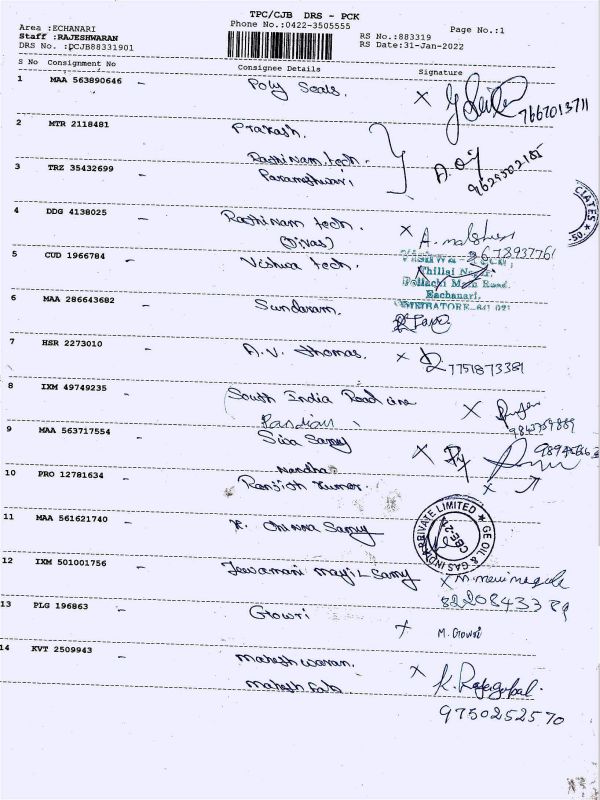 TPC/CJB DRS - PCK
Area :ECHANARI Phone No.:0422-3505555 Page No.:1
Staff :RAJESHWARAN RS No.:883319
DRS No. :PCJB88331901 RS Date:31-Jan-2022
S No Consignment No Consignee Details Signature
1 MAA 563890646 - Poly Seals. X 7667013711
2 MTR 2118481 Prakash.
Rathinam tech.
3 TRZ 35432699 - Parameshwari 9629502185
4 DDG 4138025 - Rathinam tech. X
(Divas)
5 CUD 1966784 - Vishwa tech.
Thillai Nagar,
Pollachi Main Road,
Eachanari,
COIMBATORE-641 021
6 MAA 286643682 - Sundaram.
7 HSR 2273010 - A.V. Thomas. X 7751873381
8 IXM 49749235 - South India Road Line X
Pandian
9 MAA 563717554 - Siva Samy X
Nandha
10 PRO 12781634 - Ranjith Kumar. X
11 MAA 561621740 - K. Chinna Samy
GE OIL & GAS INDIA PRIVATE LIMITED
12 IXM 501001756 - Jeevamani Mayil Samy X
8220843389
13 PLG 196863 - Gowri X M. Gowri
14 KVT 2509943 - Maheshwaran. X K. Rajagopal.
Mahesh Fab.
9750252570